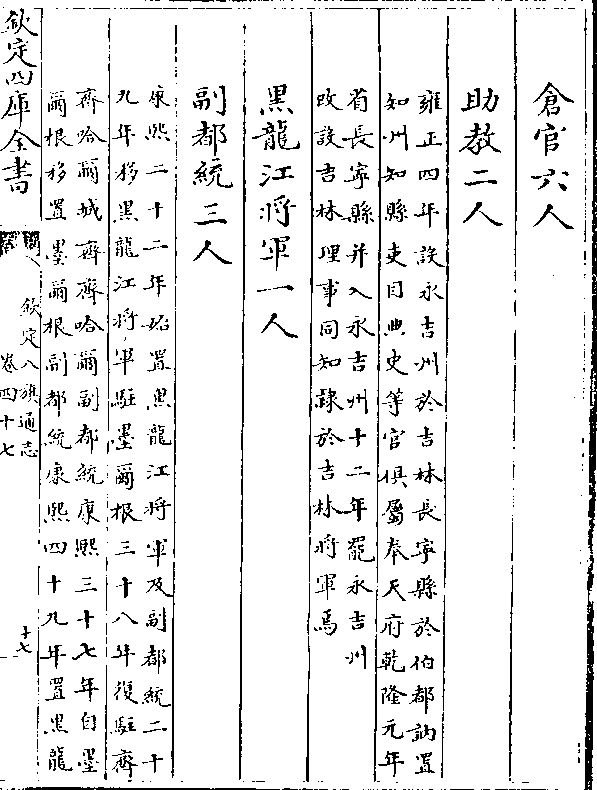 倉官六人
助教二人
雍正四年設永吉州於吉林長寧縣於伯都訥置
知州知縣吏目典史等官俱屬奉天府乾隆元年
省長寧縣并入永吉州十二年罷永吉州
改設吉林理事同知隸於吉林將軍焉
黑龍江將軍一人
副都統三人
康熙二十二年始置黑龍江將軍及副都統二十
九年移黑龍江將軍駐墨爾根三十八年復駐齊
齊哈爾城齊齊哈爾副都統康熙三十七年自墨
爾根移置墨爾根副都統康熙四十九年置黑龍
欽定四庫全書
欽定八旗通志
卷四十七
十七